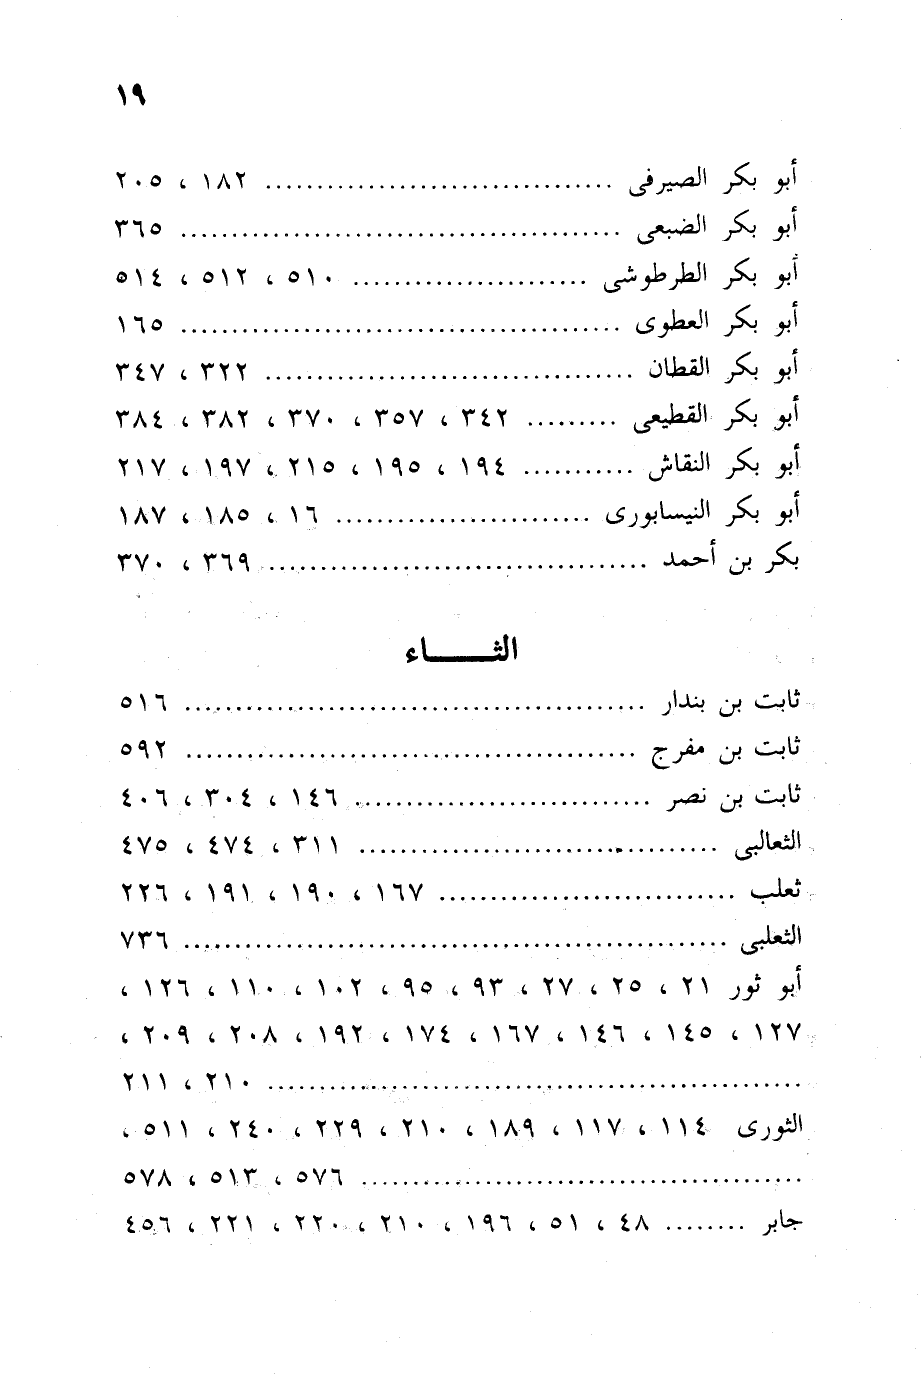 ١٩
أبو بكر الصيرفى .................................. ١٨٢ ، ٢٠٥
أبو بكر الضبعى ........................................... ٣٦٥
أبو بكر الطرطوشى ....................... ٥١٠ ، ٥١٢ ، ٥١٤
أبو بكر العطوى ........................................... ١٦٥
أبو بكر القطان .................................... ٣٢٢ ، ٣٤٧
أبو بكر القطيعى ......... ٣٤٢ ، ٣٥٧ ، ٣٧٠ ، ٣٨٢ ، ٣٨٤
أبو بكر النقاش ........... ١٩٤ ، ١٩٥ ، ٢١٥ ، ١٩٧ ، ٢١٧
أبو بكر النيسابورى ......................... ١٦ ، ١٨٥ ، ١٨٧
بكر بن أحمد ..................................... ٣٦٩ ، ٣٧٠
الثـــــاء
ثابت بن بندار ............................................. ٥١٦
ثابت بن مفرج ............................................ ٥٩٢
ثابت بن نصر ............................. ١٤٦ ، ٣٠٤ ، ٤٠٦
الثعالبى ................................... ٣١١ ، ٤٧٤ ، ٤٧٥
ثعلب ............................. ١٦٧ ، ١٩٠ ، ١٩١ ، ٢٢٦
الثعلبى ..................................................... ٧٣٦
أبو ثور ٢١ ، ٢٥ ، ٢٧ ، ٩٣ ، ٩٥ ، ١٠٢ ، ١١٠ ، ١٢٦ ،
١٢٧ ، ١٤٥ ، ١٤٦ ، ١٦٧ ، ١٧٤ ، ١٩٢ ، ٢٠٨ ، ٢٠٩ ،
.................................................... ٢١٠ ، ٢١١
الثورى ١١٤ ، ١١٧ ، ١٨٩ ، ٢١٠ ، ٢٢٩ ، ٢٤٠ ، ٥١١ ،
........................................... ٥٧٦ ، ٥١٣ ، ٥٧٨
جابر ........ ٤٨ ، ٥١ ، ١٩٦ ، ٢١٠ ، ٢٢٠ ، ٢٢١ ، ٤٥٦